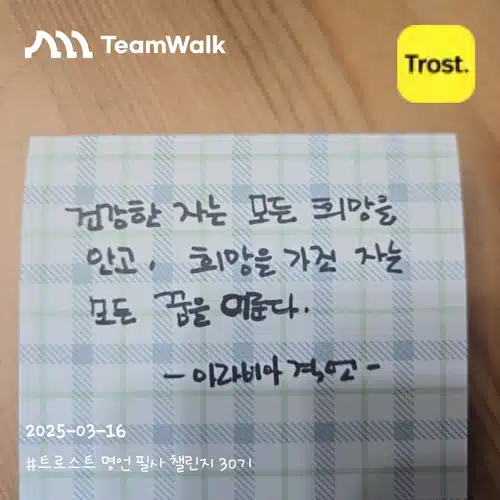 TeamWalk
Trost.
건강한 자는 모든 희망을
안고, 희망을 가진 자는
모든 꿈을 이룬다.
- 아라비아 격언 -
2025-03-16
#트로스트 명언 필사 챌린지 30기